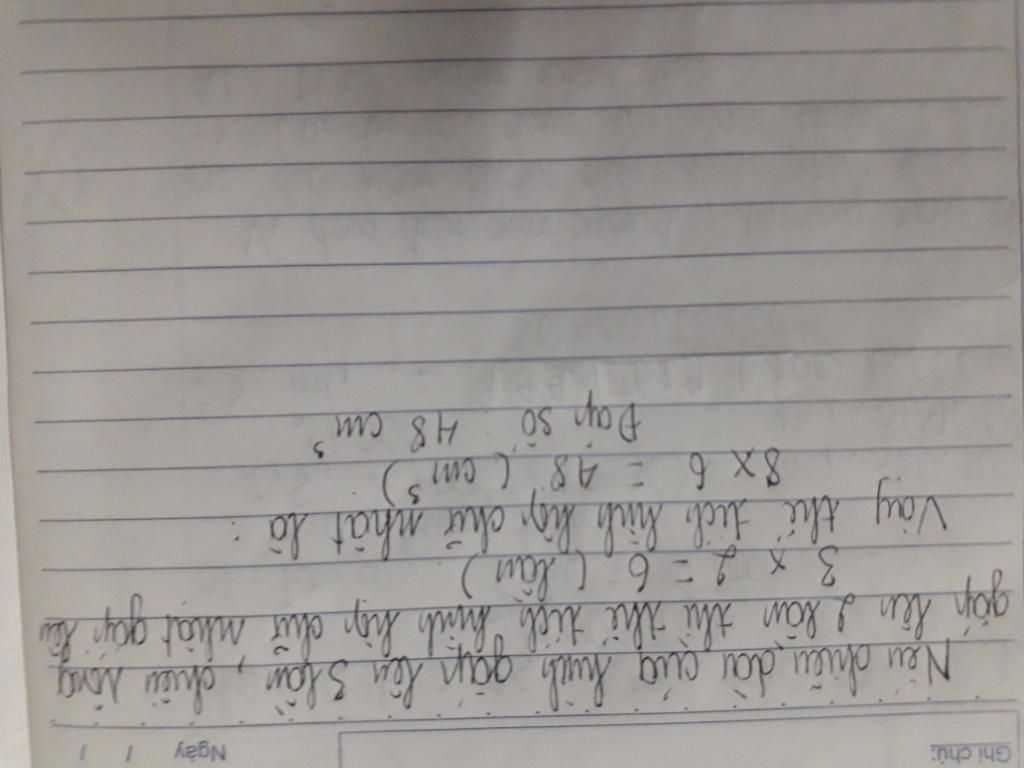 Ghi chú: Ngày / /
Nếu chiều dài của hình gấp lên 3 lần, chiều rộng
gấp lên 2 lần thì thể tích hình hộp chữ nhật gấp lên
3 x 2 = 6 ( lần )
Vậy thể tích hình hộp chữ nhật là :
8 x 6 = 48 ( cm³ )
Đáp số : 48 cm³